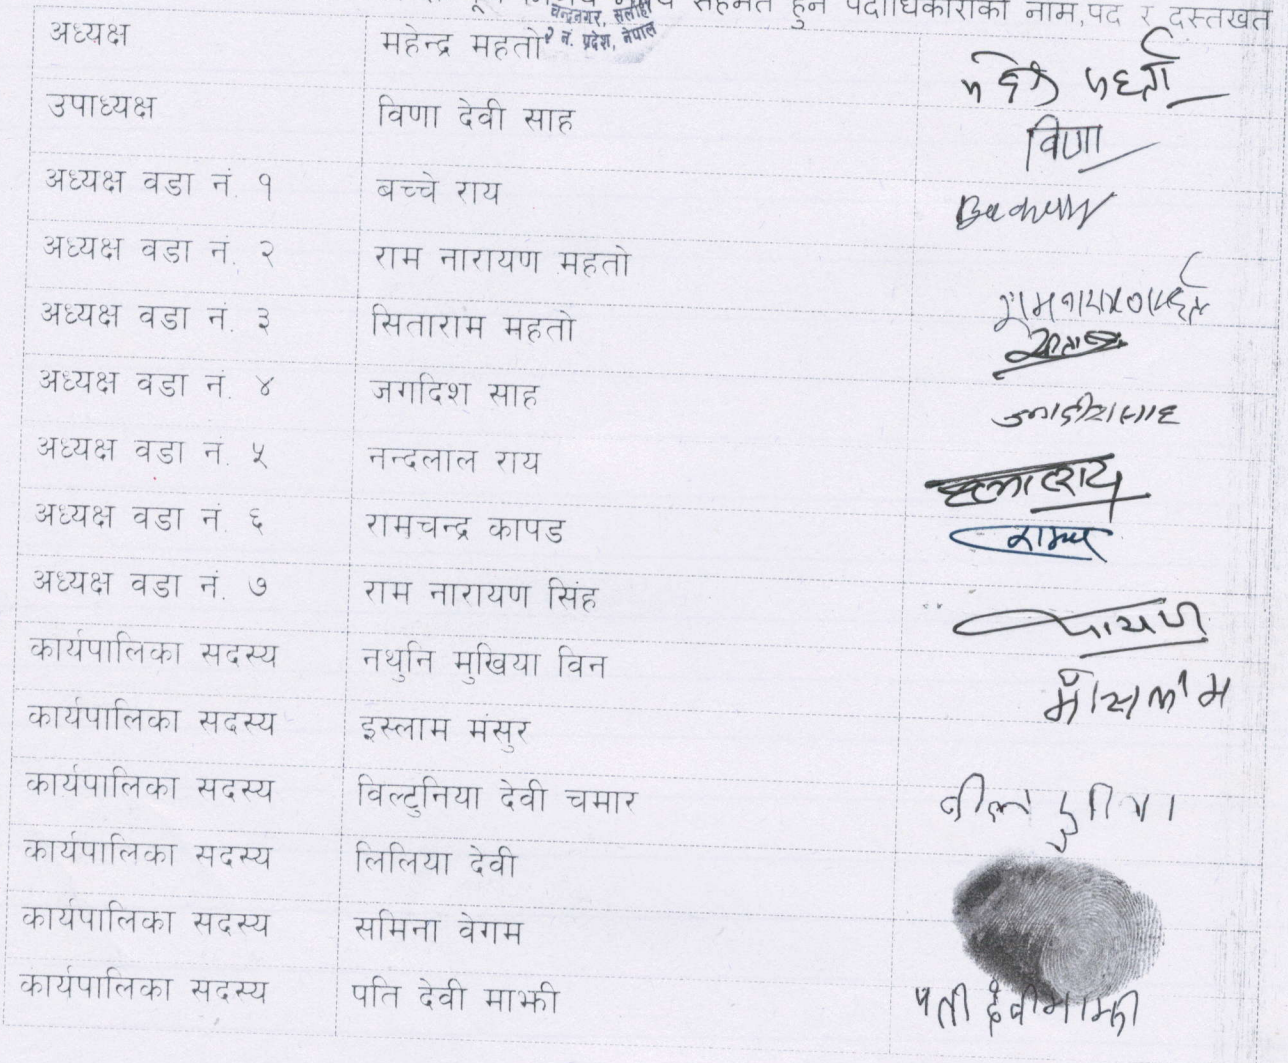 सहमत हुने पदाधिकारीको नाम,पद र दस्तखत
चन्द्रनगर, सर्लाही
२ नं. प्रदेश, नेपाल
अध्यक्ष महेन्द्र महतो
उपाध्यक्ष विणा देवी साह विणा
अध्यक्ष वडा नं. १ बच्चे राय
अध्यक्ष वडा नं. २ राम नारायण महतो
अध्यक्ष वडा नं. ३ सिताराम महतो
अध्यक्ष वडा नं. ४ जगदिश साह
अध्यक्ष वडा नं. ५ नन्दलाल राय
अध्यक्ष वडा नं. ६ रामचन्द्र कापड
अध्यक्ष वडा नं. ७ राम नारायण सिंह
कार्यपालिका सदस्य नथुनि मुखिया विन
कार्यपालिका सदस्य इस्लाम मंसुर
कार्यपालिका सदस्य विल्टुनिया देवी चमार
कार्यपालिका सदस्य लिलिया देवी
कार्यपालिका सदस्य समिना वेगम
कार्यपालिका सदस्य पति देवी माझी पती देवी माझी